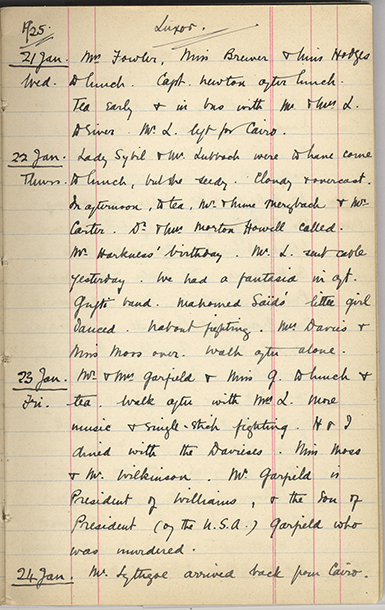 1925. Luxor.
21 Jan. Mrs Fowler, Miss Brewer & Miss Hodges
Wed. to lunch. Capt. Newton after lunch.
Tea early & in bus with Mr & Mrs L.
to river. Mr. L. left for Cairo.
22 Jan. Lady Sybil & Mr. Lubbock were to have come
Thurs. to lunch, but she seedy. Cloudy & overcast.
In afternoon, to tea, Mr. & Mme Merzbach & Mr.
Carter. Dr. & Mrs Morton Howell called.
Mr Harkness' birthday. Mr. L. sent cable
yesterday. We had a fantasia in cyt.
Gufti band. Mahomed Said's little girl
danced. Nabout fighting. Mrs Davies &
Miss Moss over. Walk after alone.
23 Jan. Mr. & Mrs Garfield & Miss G. to lunch &
Fri. tea. Walk after with Mrs L. More
music & single-stick fighting. H & I
dined with the Davieses. Miss Moss
& Mr. Wilkinson. Mr. Garfield is
President of Williams, & the son of
President (of the U.S.A.) Garfield who
was murdered.
24 Jan. Mr. Lythgoe arrived back from Cairo.